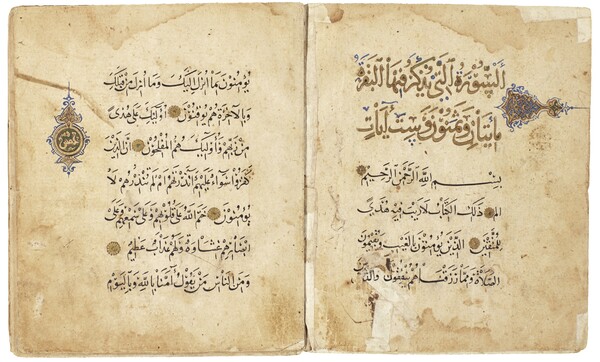 السورة التي تذكر فيها البقرة
مائتان وثمنون وست آيات
بسم الله الرحمن الرحيم
الم ذلك الكتاب لا ريب فيه هدى
للمتقين الذين يؤمنون بالغيب ويقيمون
الصلاة ومما رزقناهم ينفقون والذين
يؤمنون بما أنزل إليك وما أنزل من قبلك
وبالآخرة هم يوقنون أولئك على هدى
من ربهم وأولئك هم المفلحون إن الذين
كفروا سواء عليهم أأنذرتهم أم لم تنذرهم لا
يؤمنون ختم الله على قلوبهم وعلى سمعهم وعلى
أبصارهم غشاوة ولهم عذاب عظيم
ومن الناس من يقول آمنا بالله وباليوم